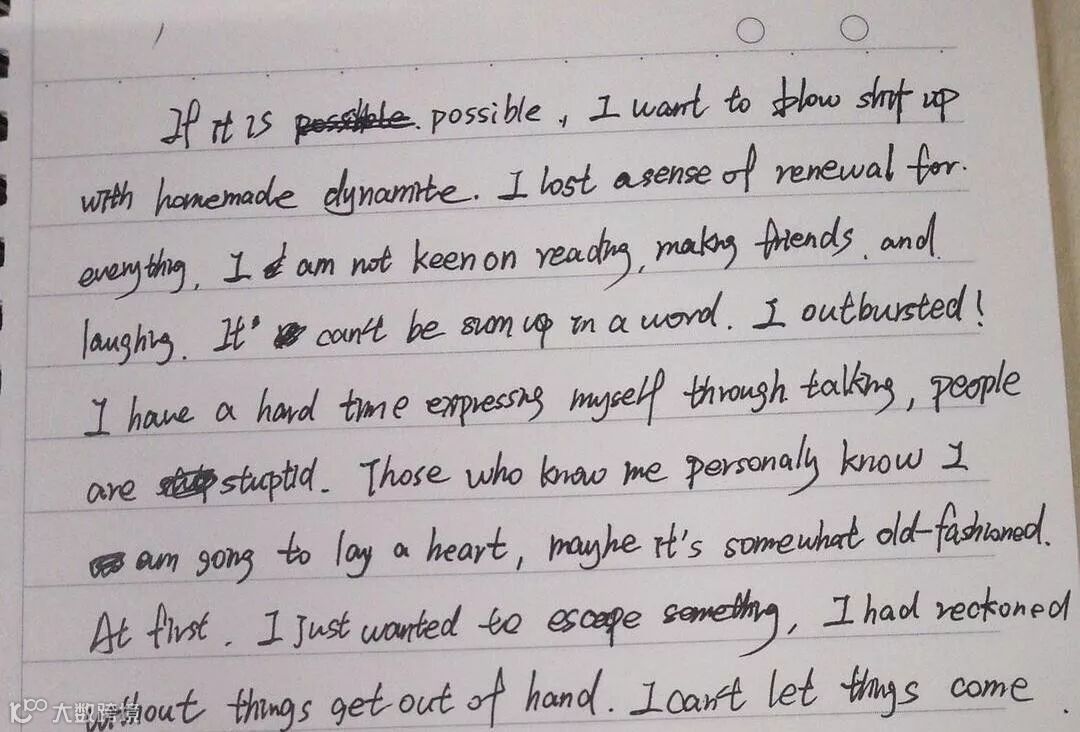 If it is possible. possible, I want to blow shit up
with homemade dynamite. I lost a sense of renewal for.
everything, I am not keen on reading, making friends, and
laughing. It' can't be sum up in a word. I outbursted!
I have a hard time expressing myself through talking, people
are stuptid. Those who know me personaly know I
am going to lay a heart, maybe it's somewhat old-fashioned.
At first, I just wanted to escape something, I had reckoned
without things get out of hand. I can't let things come
大数跨境